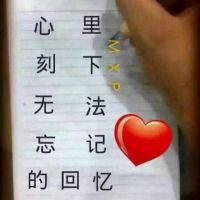 心里
刻下
无法
忘记
的回忆
MXP